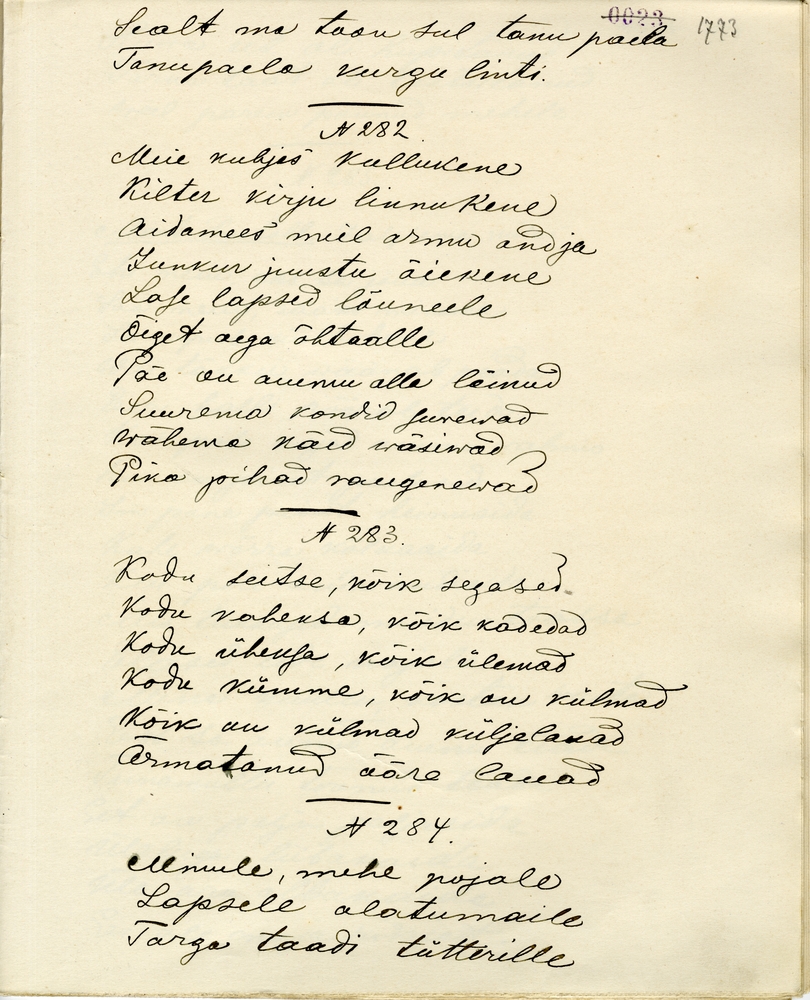 0023
1773
Sealt ma toon sul tanu paela
Tanupaela kurgu linti.
N 282
Meie kubjes kullukene
Kilter kirju linnukene
Aidamees meil armu andja
Junkur juustu õiekene
Lase lapsed lõuneele
Õiget aega õhtaalle
Päe on auemu alla läinud
Suurema kondid surewad
wähema näid wäsiwad
Pika pihad raugenewad
N 283.
Kodu seitse, kõik segased
Kodu kaheksa, kõik kadedad
Kodu üheksa, kõik ülemad
Kodu kümme, kõik on külmad
Kõik on külmad küljelauad
Armatanud ääre lauad
N 284.
Minule, mehe pojale
Lapsele alatumaile
Targa taadi tütterille